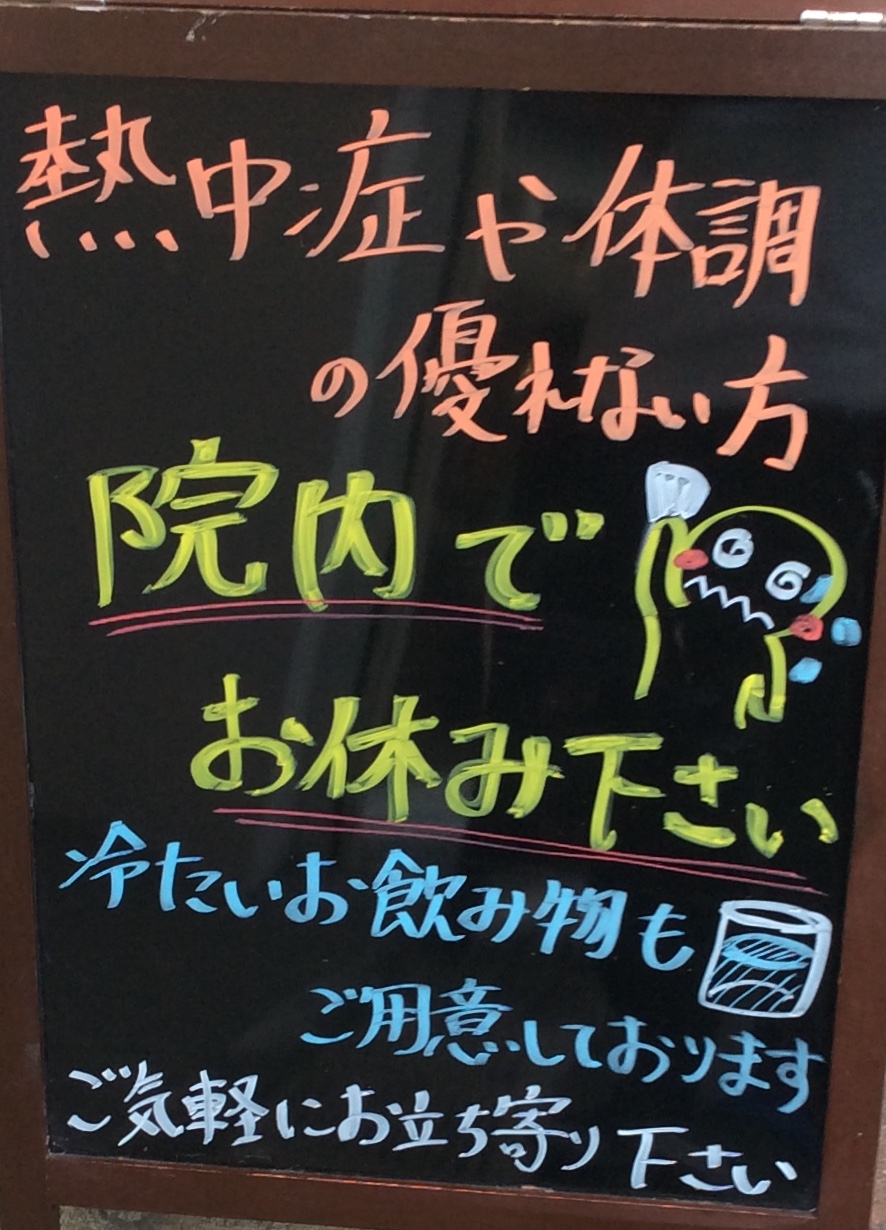 熱中症や体調
の優れない方
院内で
お休み下さい
冷たいお飲み物も
ご用意しております
ご気軽にお立ち寄り下さい